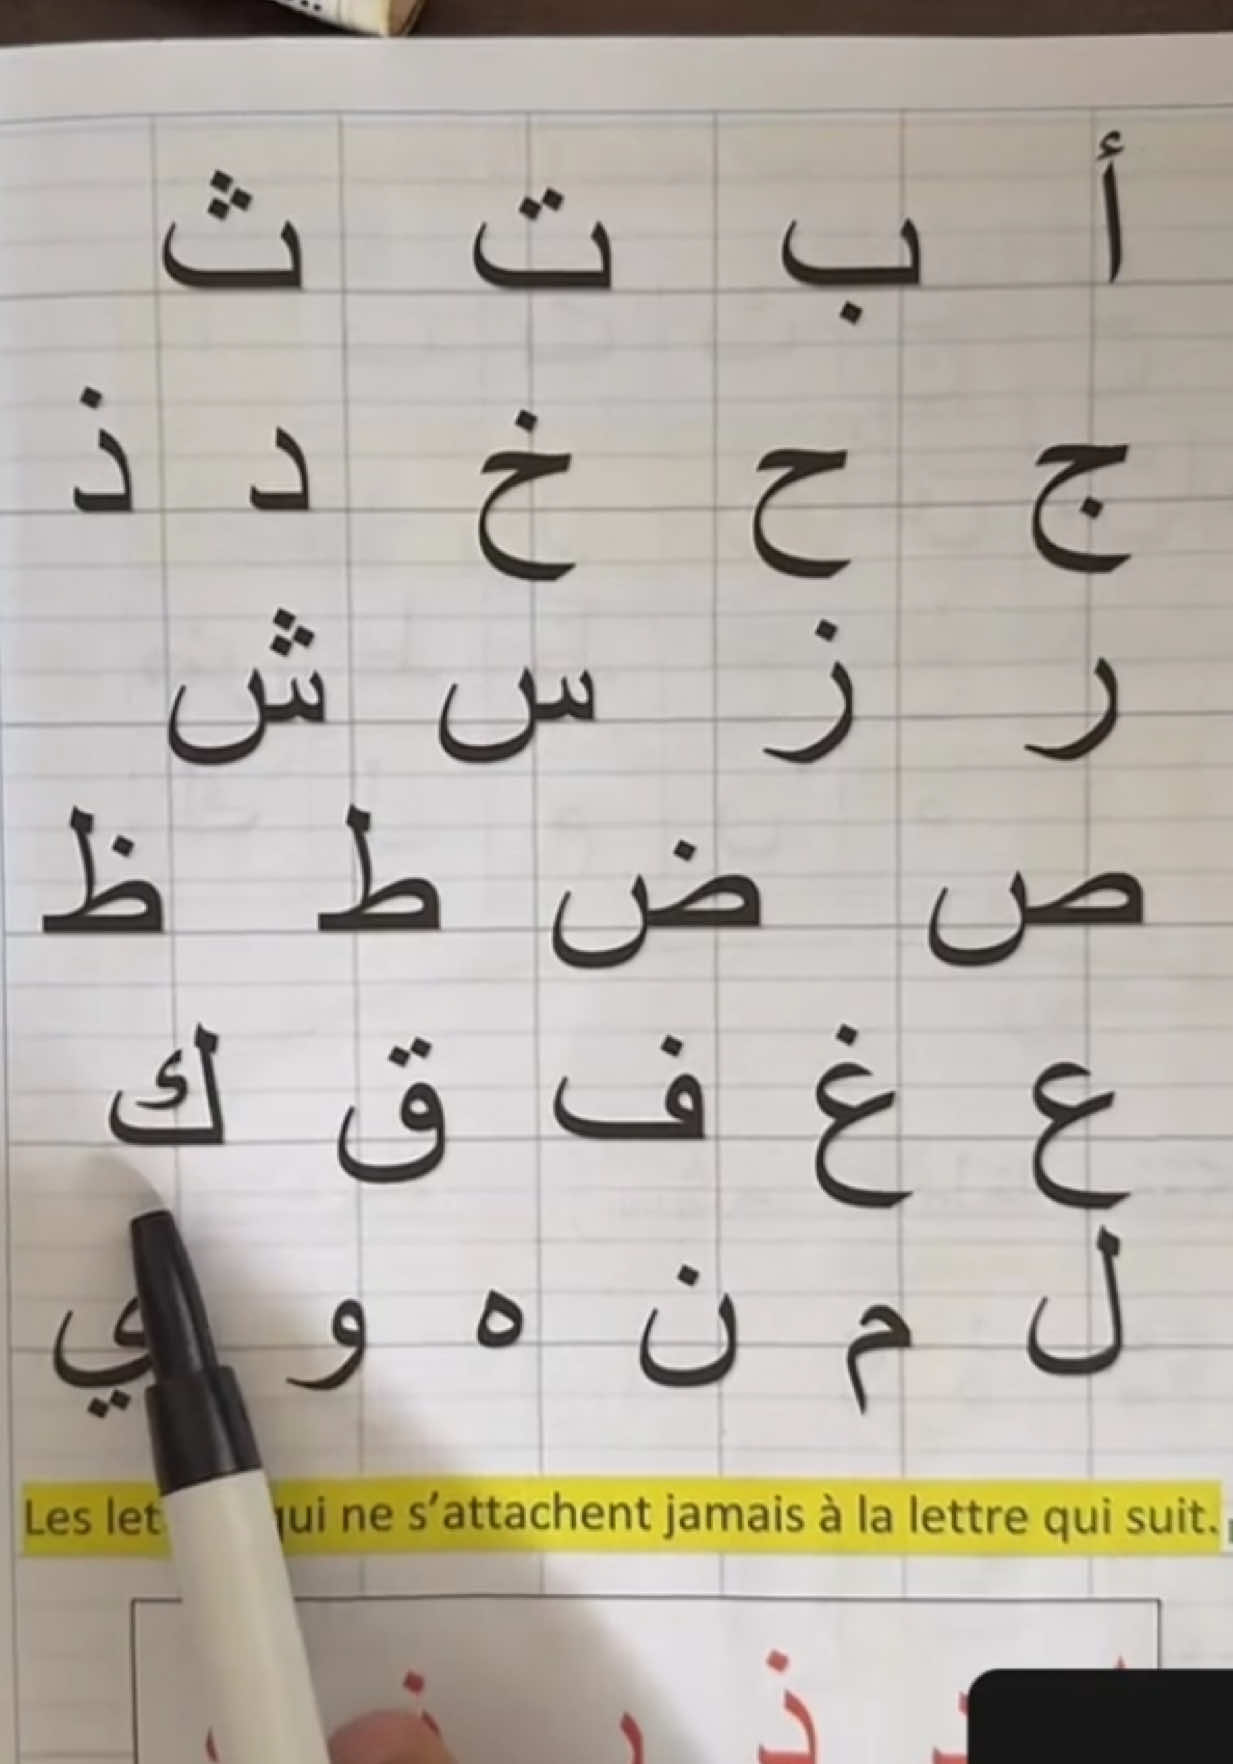 أ ب ت ث
ج ح خ د ذ
ر ز س ش
ص ض ط ظ
ع غ ف ق ك
ل م ن ه و ي
Les ne s’attachent jamais à la lettre qui suit.
ذ ر ز